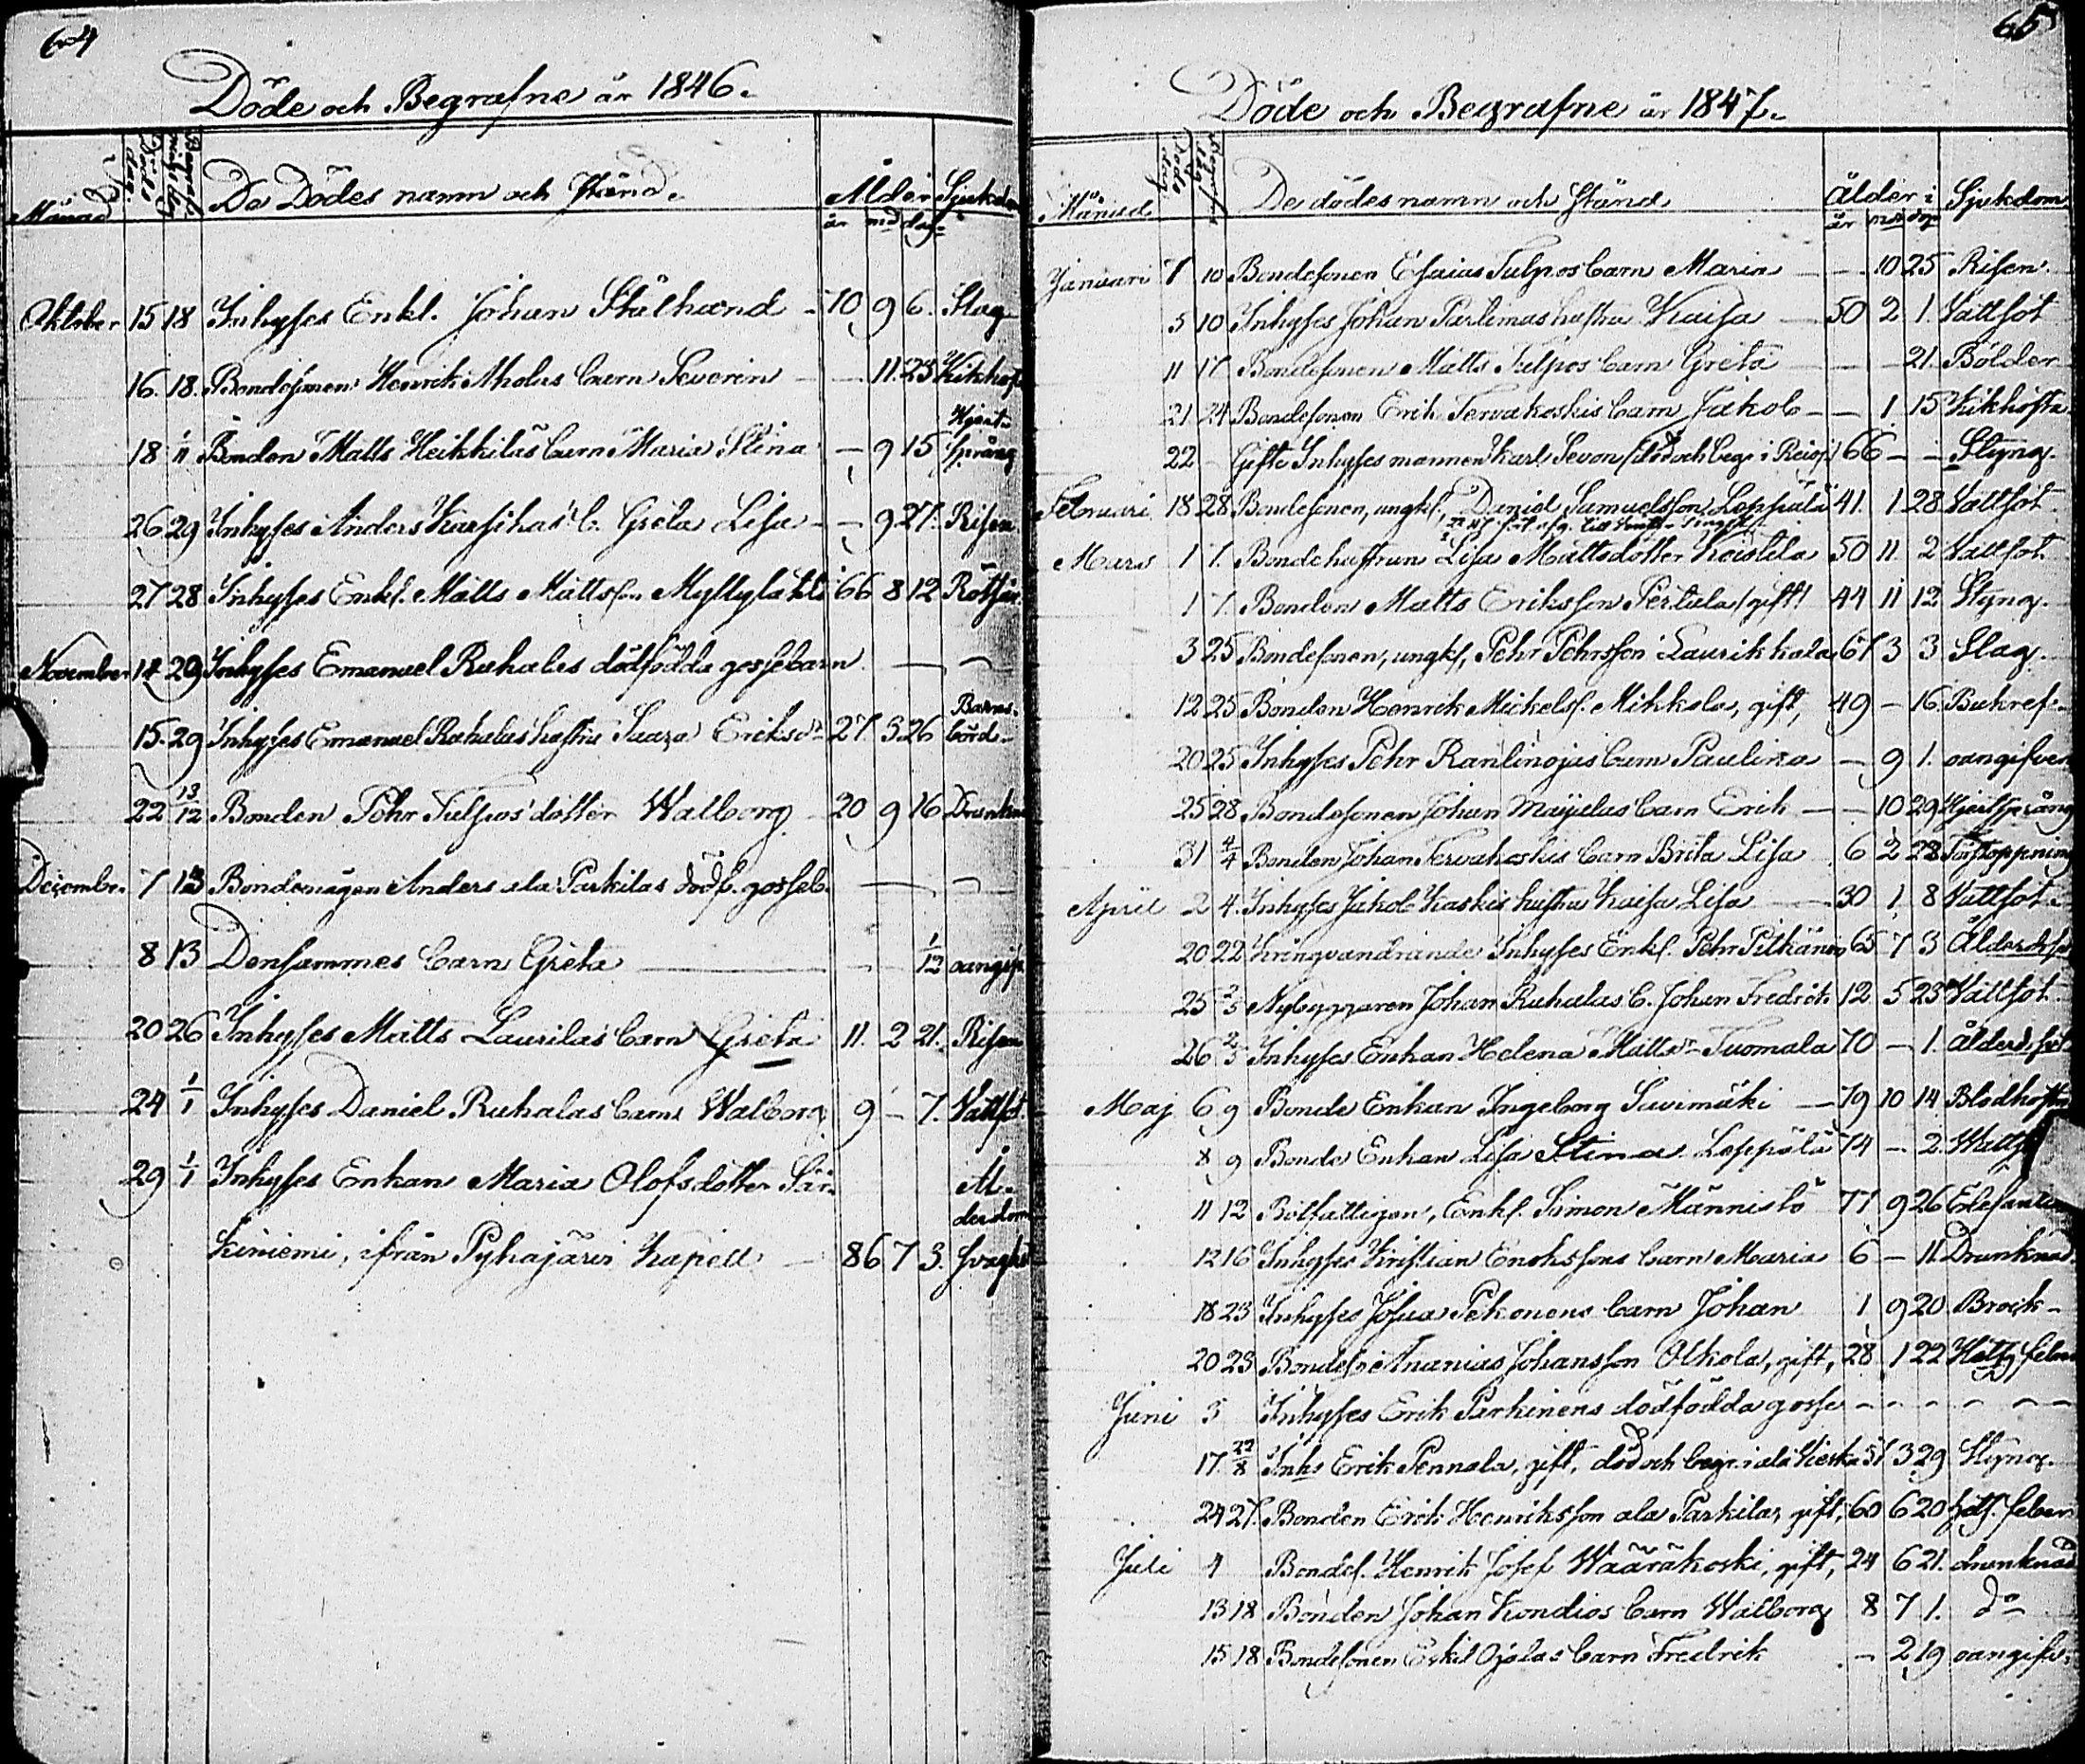 64
Döde och Begrafne år 1846.
Månad Döds dag Begrafnings dag De Dödes namn och Stånd. Ålder Sjukdom
år md dag
Oktober 15 18 Inhyses Enkl. Johan Stålhand - 70 9 6. Slag
16. 18. Bondesonen Henrik Aholas barn Severin - - 11. 23 Kikhost
18 1/11 Bonden Matts Heikkilas barn Maria Stina - 9 15 Hjert språng
26 29 Inhyses Anders Karsikas b. Greta Lisa - - 9 27. Risen
27 28 Inhyses Enkl. Matts Mattss. Myllylahti 66 8 12 Rötfeb.
November 14 29 Inhyses Emanuel Ruhalas dödfödda gossebarn — —
15. 29 Inhyses Emanuel Ruhalas hustru Saara Eriksdr 27 3. 26 Barns börd
22 13/12 Bonden Pehr Tulpos dotter Walborg 20 9 16 Drunkn
Decembr. 7 13 Bondemågen Anders ala Parkilas dödf. gosseb. — —
8 13 Densammes barn Greta — 1/12 oangif.
20 26 Inhyses Matts Laurilas barn Greta 11. 2 21. Risen
24 1/1 Inhyses Daniel Ruhalas barn Walborg 9 - 7. Vattsot.
29 1/1 Inhyses Enkan Maria Olofsdotter Sär- Ål- derdom
kiniemi, ifrån Pyhäjärvi Kapell — 86 7 3. svaghet
65
Döde och Begrafne år 1847.
Månad Döds dag Begrafn. dag De dödes namn och stånd Ålder i Sjukdom
år md dag
Januari 7 10 Bondesonen Esaias Tulpos barn Maria — - 10 25 Risen.
5 10 Inhyses Johan Parlimas hustru Kaisa — 50 2 1. Vattsot
11 17 Bondesonen Matts Tulpos barn Greta — - - 21. Bölder
21 24 Bondesonen Erik Tervakoskis barn Jakob - - 1 15 Kikhosta
22 - Gifte Inhyses mannen Karl Sevon (död och begr. i Reisj.) 66 - - Styng.
Februari 18 28 Bondesonen, ungk., Daniel Samuelsson Leppälä 41. 1 28 Vattsot
Mars 1 7. Bonde hustrun Lisa Mattsdotter Koistila 50 11 2 Vattsot.
1 7. Bonden Matts Eriksson Pertula /gift/ 44 11 12 Styng.
3 25 Bondesonen, ungk., Pehr Pehrsson Laurikkala 67 3 3 Slag.
12 25 Bonden Henrik Mickelss. Mikkola, gift, 49 - 16. Bukref.
20 25 Inhyses Pehr Ranlinojas barn Paulina - 9 1. oangifven
25 28 Bondesonen Johan Maijalas barn Erik - - 10 29 Hjertspräng
31 4/4 Bonden Johan Tervakoskis barn Brita Lisa 6 2 28 Förstoppning
April 2 4. Inhyses Jakob Kaskis hustru Kaisa Lisa — 30 1 8 Vattsot.
20 22 Kringvandrande Inhyses Enkl. Pehr Pitkänen 65 7 3 Ålderds.
25 2/5 Nybyggaren Johan Ruhalas b. Johan Fredrik 12 5 23 Vattsot
26 2/5 Inhyses Enkan Helena Mattsdr Tuomala 70 - 1. ålderd. sv.
Maj 6 9 Bonde Enkan Ingeborg Savimäki — 79 10 14 Blodhosta
8 9 Bonde Enkan Lisa Stina Leppälä 74 - 2. Watts
11 12 Rotfattigen, Enkl. Simon Männistö 77 9 26 Elefantia
12 16 Inhyses Kristian Enokssons barn Maria 6 - 11. Drunknad.
18 23 Inhyses Josua Pekonens barn Johan 1 9 20 Bråck-
20 23 Bondes. Ananias Johansson Olkola, gift, 28 1 22 Hetsig feber
Juni 3 Inhyses Erik Parkinens dödfödda gosse - - - - - -
17. 22/8 Inhs Erik Pennala, gift, död och begr. i ala Vieska 51 3 29 Styng.
24 27. Bonden Erik Henriksson ala Parkila, gift, 60 6 20 hets. feber
Juli 4 Bondes. Henrik Josef Wääräkoski, gift, 24 6 21. drunknad
13 18 Bonden Johan Kondios barn Walborg 8 7 1. do
15 18 Bondesonen Eskil Ojalas barn Fredrik - 2 19 oangifv.